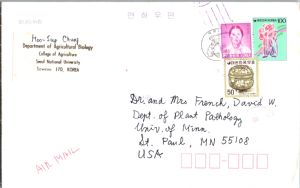 Hoo-Sup Chung
Department of Agricultural Biology
College of Agriculture
Seoul National University
Suweon 170, KOREA
100
50
Dr. and Mrs French, David W.
Dept. of Plant Pathology
Univ. of Minn.
St. Paul, MN 55108
USA
AIR MAIL